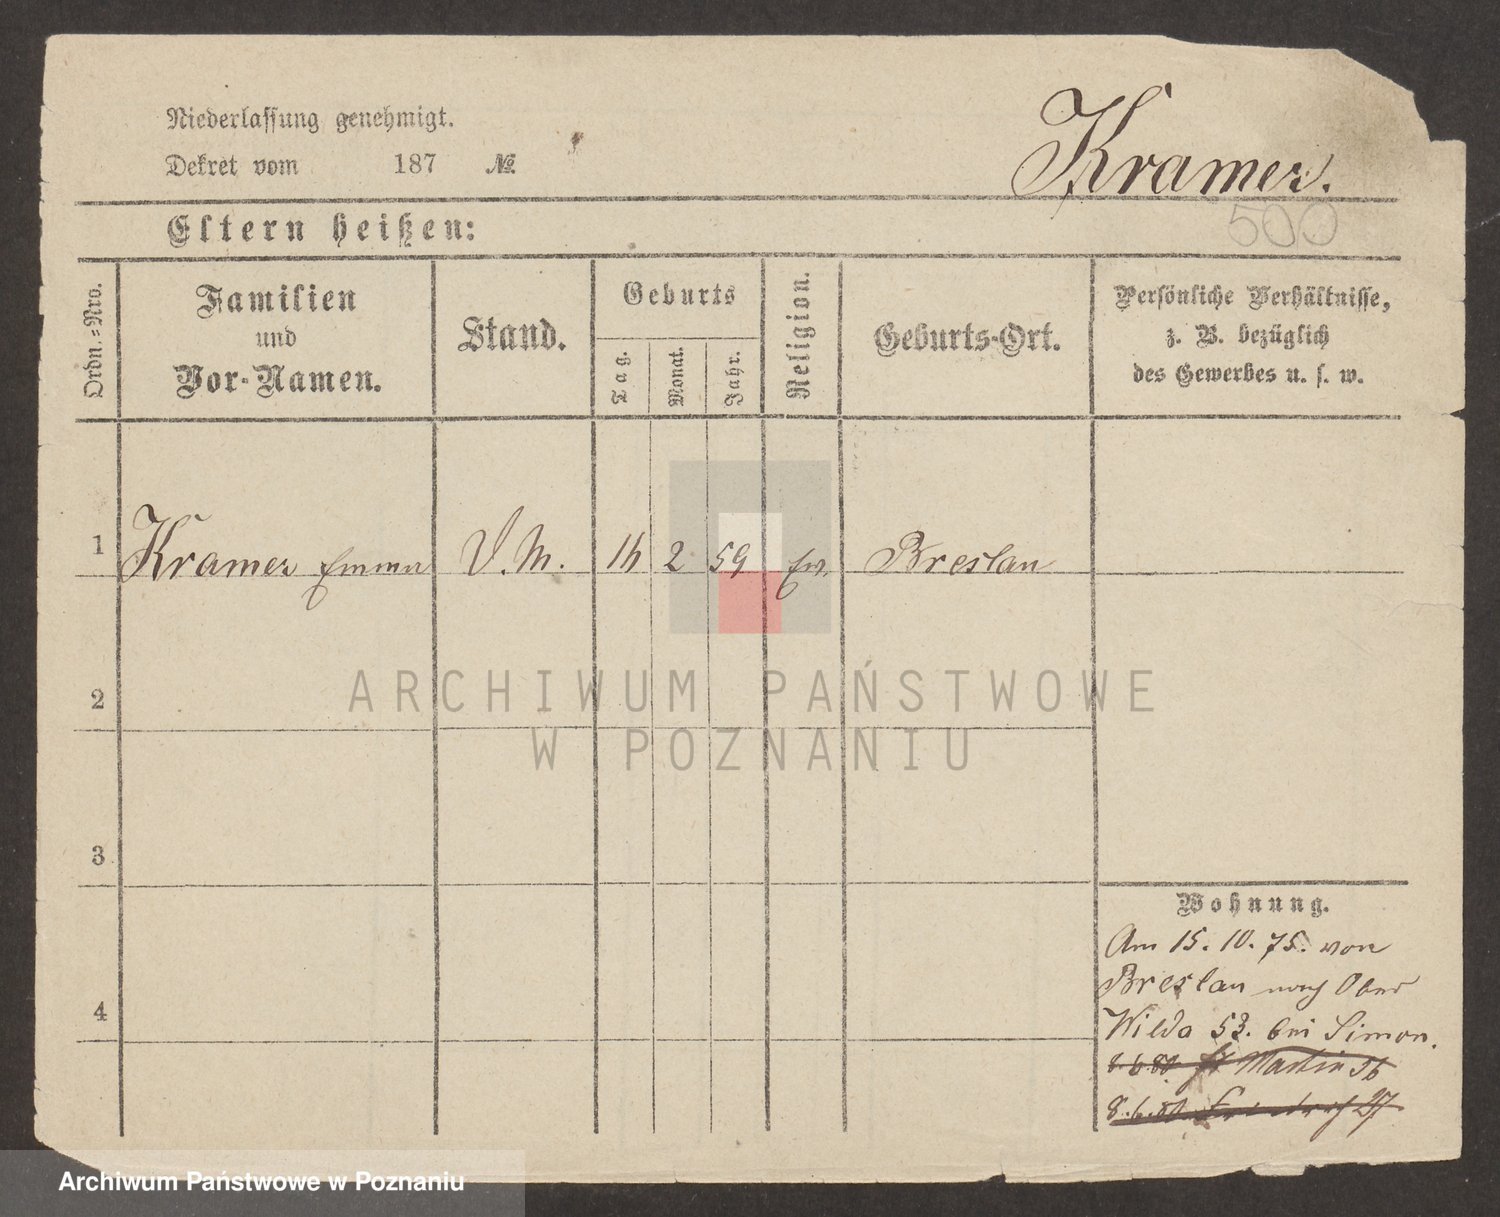 Niederlassung genehmigt.
Dekret vom 187 №
Kramer.
500
Eltern heißen:
Ordn.=Nro.
Familien
und
Vor-Namen.
Stand.
Geburts
Tag.
Monat.
Jahr.
Religion.
Geburts-Ort.
Persönliche Verhältnisse,
z. B. bezüglich
des Gewerbes u. s. w.
1 Kramer Emma 2 59 ev. Breslau
2
3
4
ARCHIWUM PAŃSTWOWE
W POZNANIU
Wohnung.
Am 15. 10. 75. von
Breslau nach Ober
Wilda 53. bei Simon.
8. 6. 80 St Martin 56
8. 6. 80 Friedrich 27
Archiwum Państwowe w Poznaniu